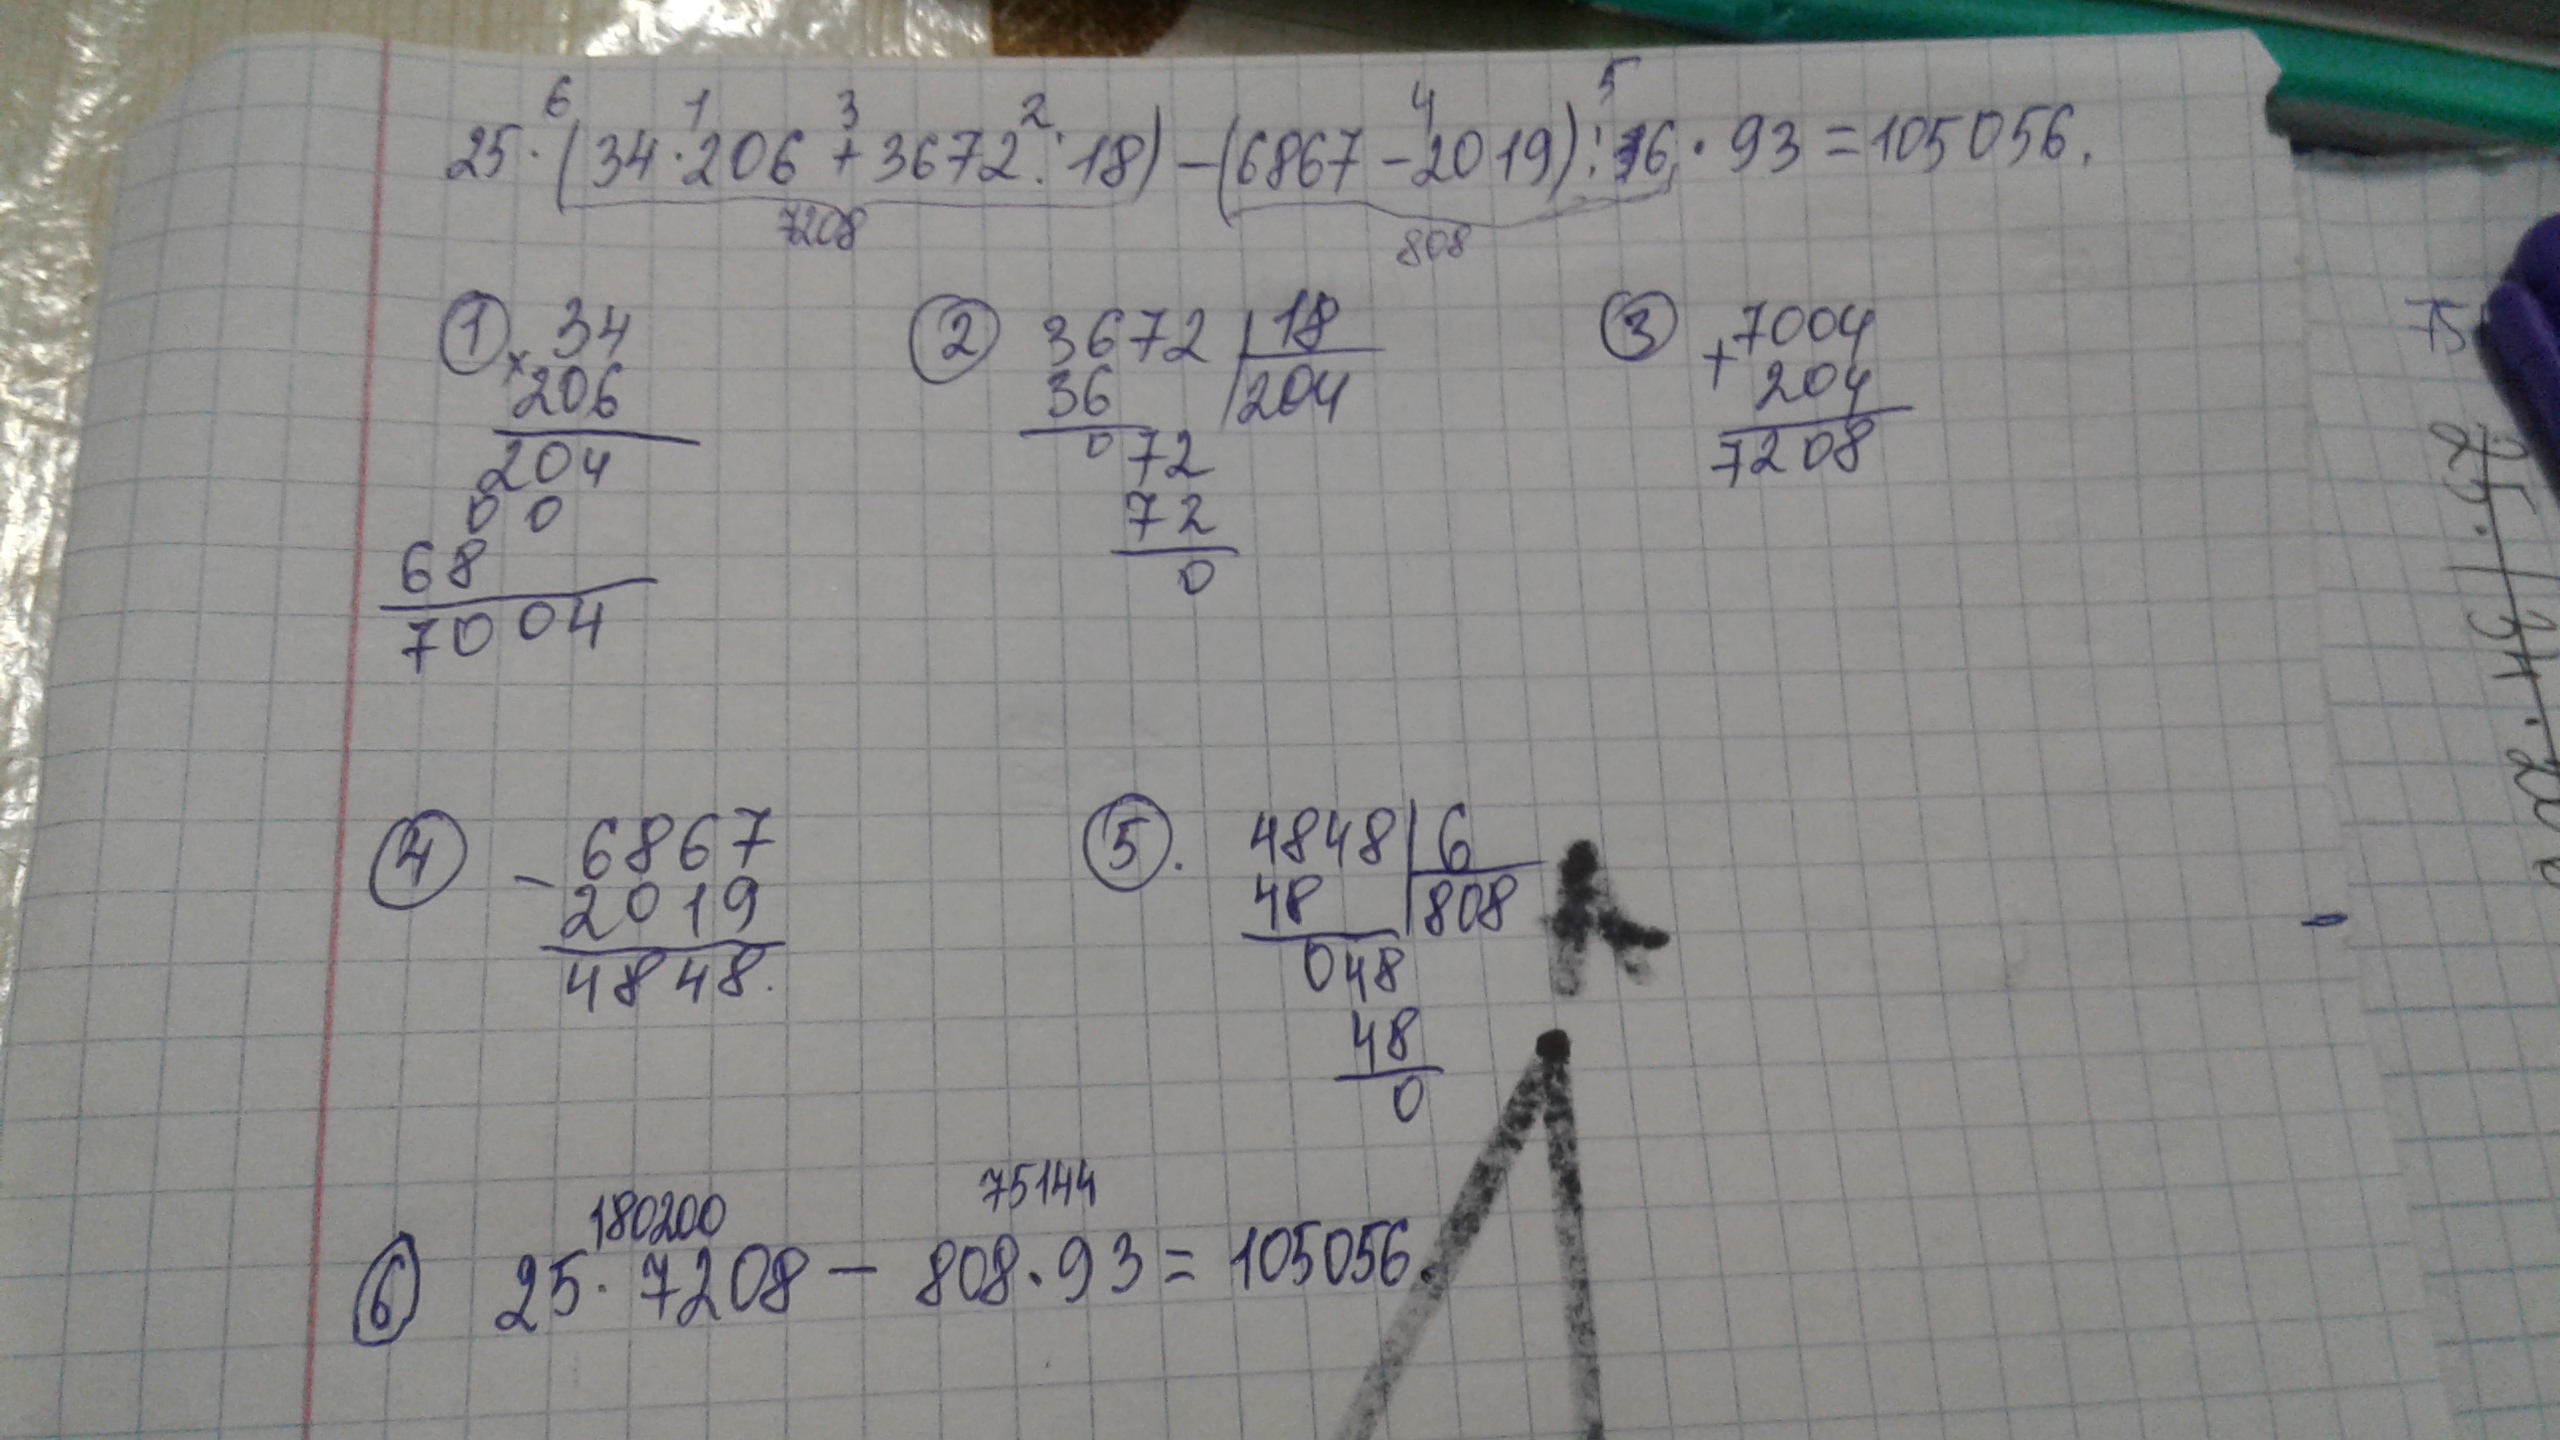 6 1 3 2 4 5
25 · (34 · 206 + 3672 : 18) - (6867 - 2019) : 6 · 93 = 105056.
7208 808
① × 34
206
204
0 0
68
7004
② 3672 | 18
36 | 204
0 72
72
0
③ + 7004
204
7208
④ - 6867
2019
4848.
⑤. 4848 | 6
48 | 808
048
48
0
180200 75144
⑥ 25 · 7208 - 808 · 93 = 105056.